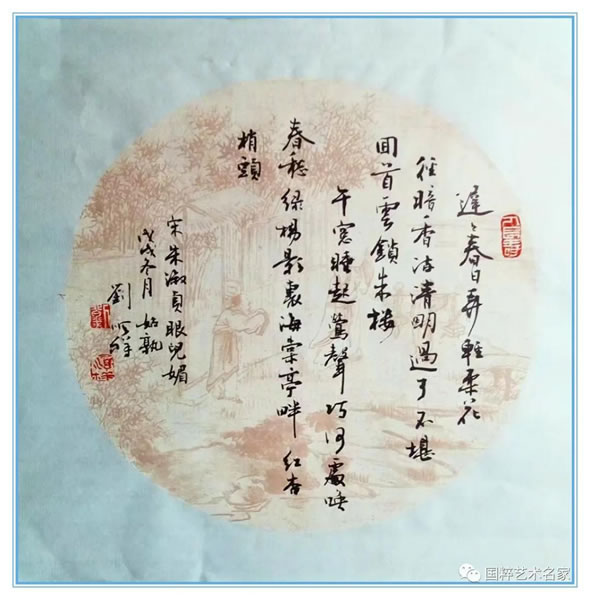 遲々春日弄輕柔花
徑暗香流清明過了不堪
回首雲鎖朱樓
午窓睡起鶯聲巧何處喚
春愁綠楊影裏海棠亭畔紅杏
梢頭
宋朱淑貞眼兒媚
戊戌冬月姑孰
劉
国粹艺术名家